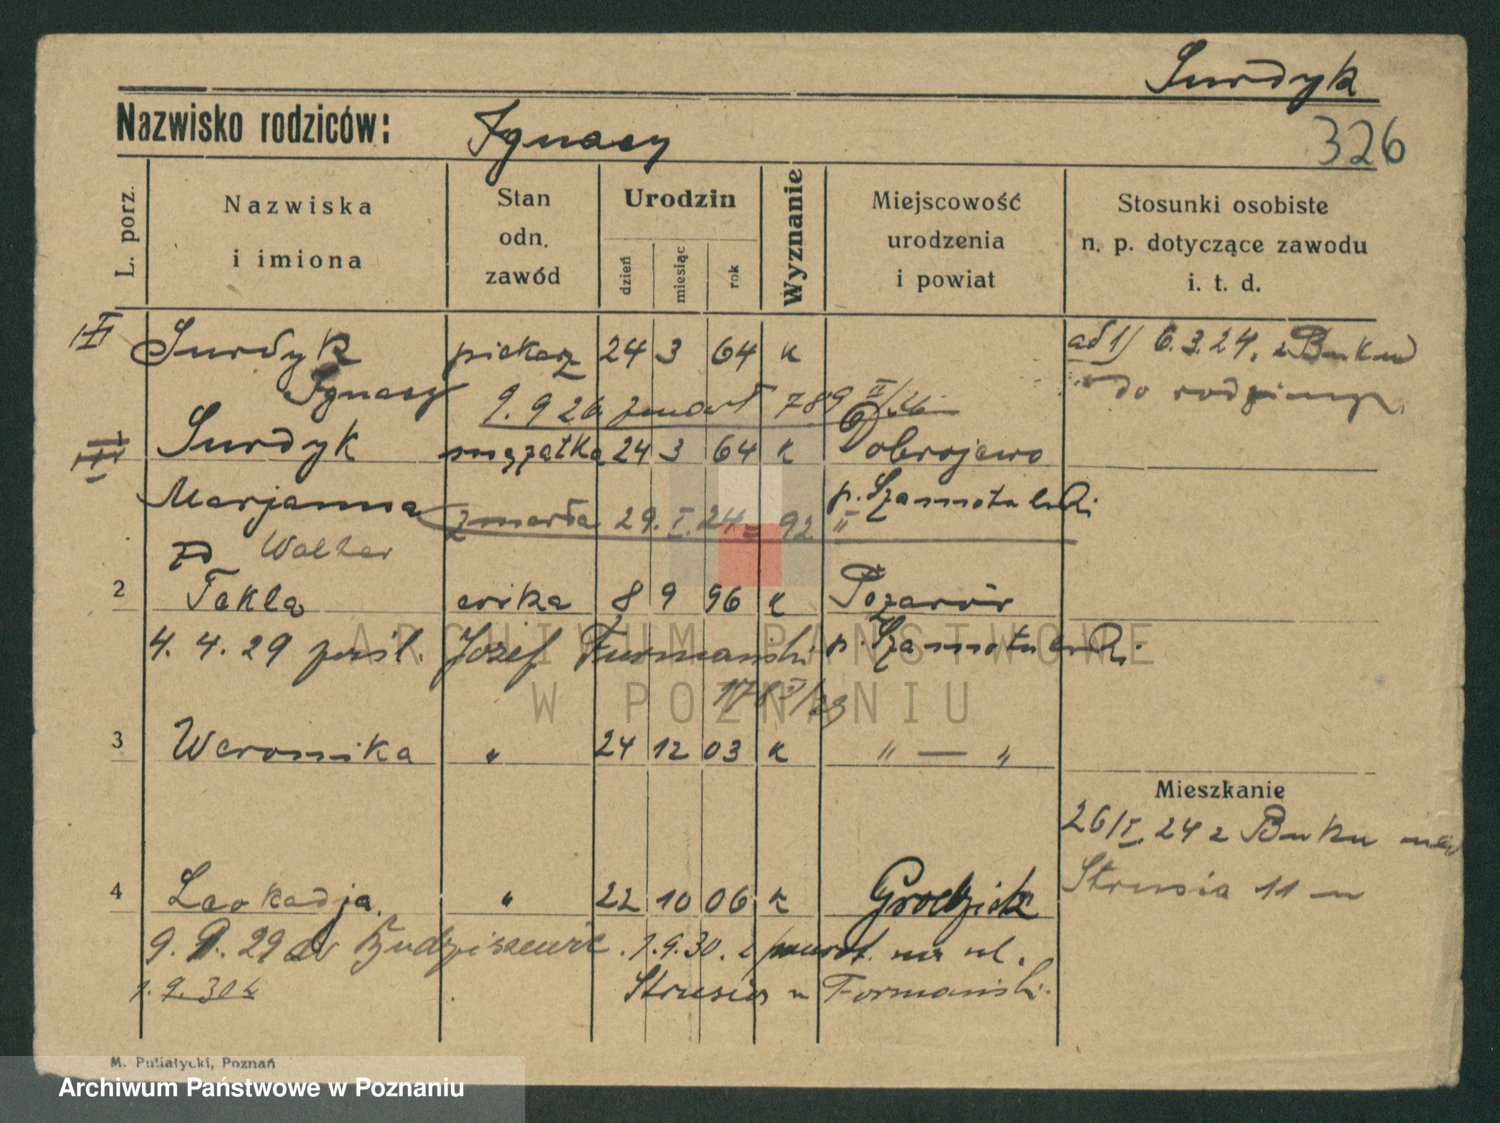 Surdyk
Nazwisko rodziców: Ignacy
326
L. porz.
Nazwiska
i imiona
Stan
odn.
zawód
Urodzin
dzień
miesiąc
rok
Wyznanie
Miejscowość
urodzenia
i powiat
Stosunki osobiste
n. p. dotyczące zawodu
i. t. d.
Surdyk piekarz 24 3 64 k ad 1) 6.3.24. z Buku
Ignacy 9. 9 26 zmarł 789 II/26 do rodziny
Surdyk mężatka 24 3 64 k Dobrojewo
Marjanna zmarła 29. I. 24 = 92 p. Szamotulski
Walter
2 Tekla córka 8 9 96 k Pożarów
4. 4. 29 pośl. Józef Furmański p. Szamotulski
178 /29
3 Weronika " 24 12 03 k " — "
Mieszkanie
26/I. 24 z Buku
Strusia 11
4 Leokadja " 22 10 06 k Grodzisk
9. 29 do Budziszewic. 1.9.30. z powrot. na ul.
1. 9. 30 Strusia Formański.
M. Putiatycki, Poznań
ARCHIWUM PAŃSTWOWE
W POZNANIU
Archiwum Państwowe w Poznaniu